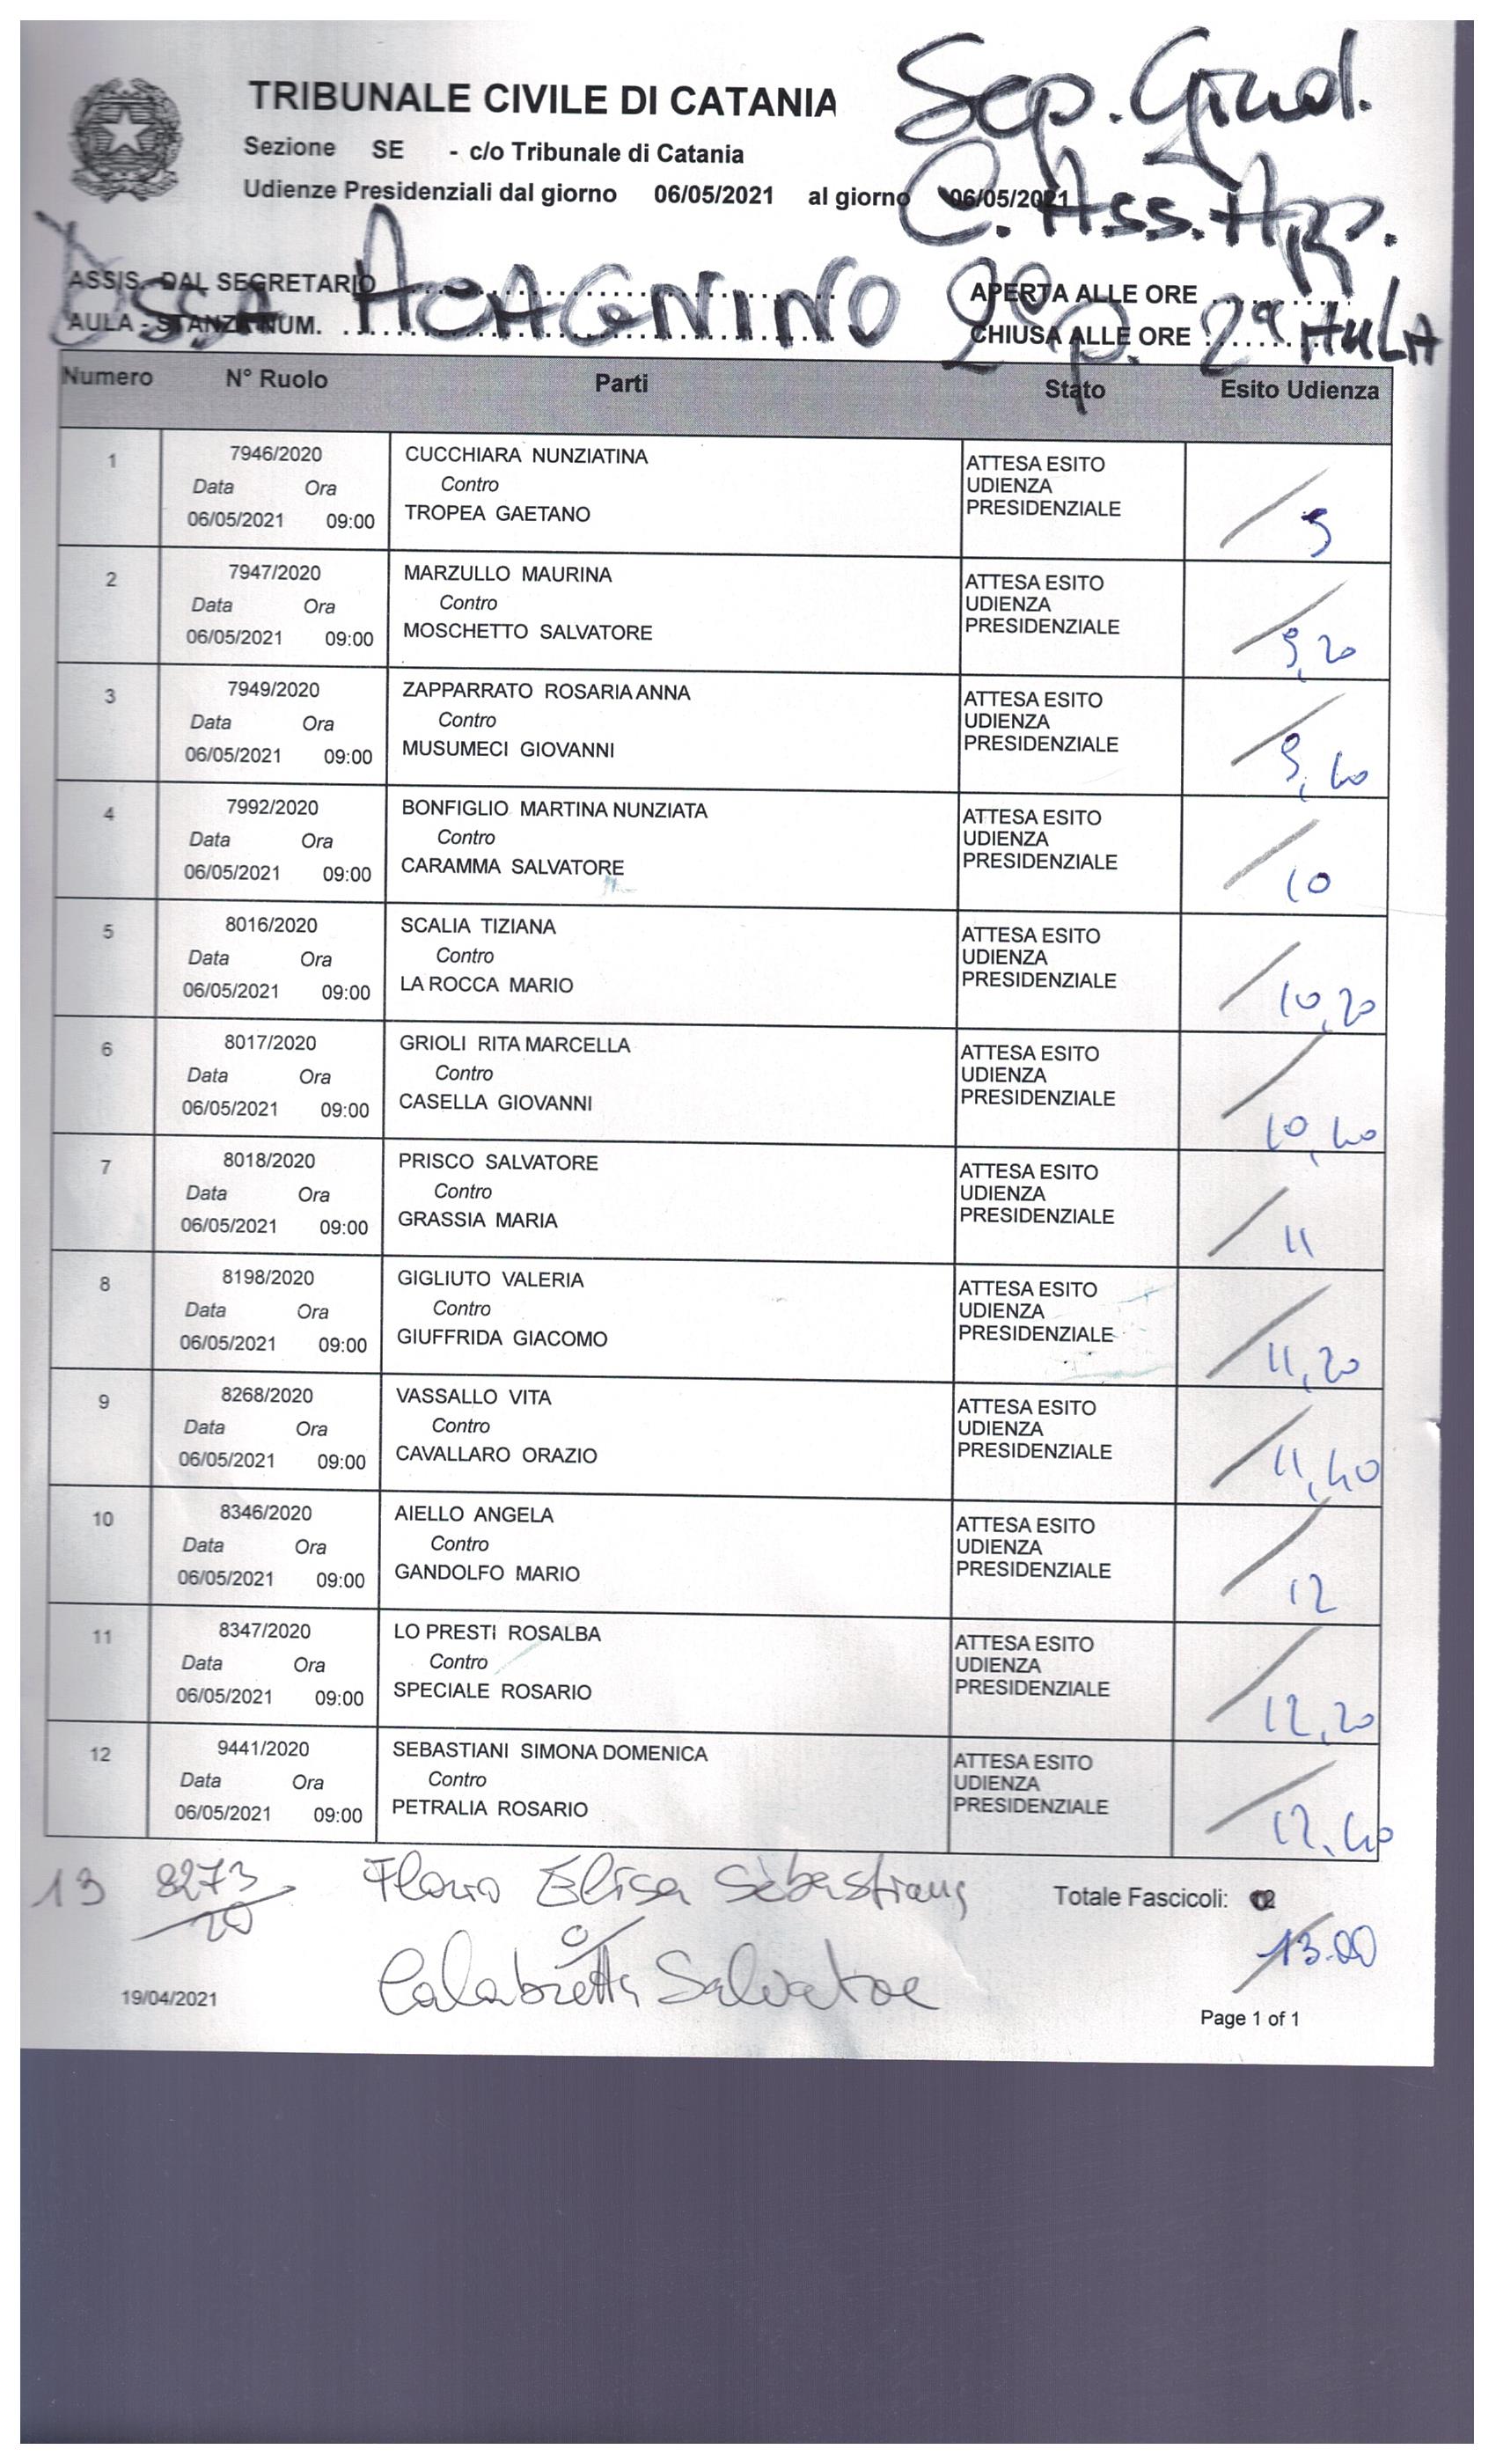 TRIBUNALE CIVILE DI CATANIA
Sep. Giud.
Sezione SE - c/o Tribunale di Catania
Udienze Presidenziali dal giorno 06/05/2021 al giorno 06/05/2021
C. Ass. App.
ASSIS. DAL SEGRETARIO
APERTA ALLE ORE
D.SSA ACAGNINO 2° p. 2ª AULA
AULA - STANZA NUM.
CHIUSA ALLE ORE
Numero N° Ruolo Parti Stato Esito Udienza
1 7946/2020 CUCCHIARA NUNZIATINA ATTESA ESITO
Data Ora Contro UDIENZA
06/05/2021 09:00 TROPEA GAETANO PRESIDENZIALE 9
2 7947/2020 MARZULLO MAURINA ATTESA ESITO
Data Ora Contro UDIENZA
06/05/2021 09:00 MOSCHETTO SALVATORE PRESIDENZIALE 9,20
3 7949/2020 ZAPPARRATO ROSARIA ANNA ATTESA ESITO
Data Ora Contro UDIENZA
06/05/2021 09:00 MUSUMECI GIOVANNI PRESIDENZIALE 9,40
4 7992/2020 BONFIGLIO MARTINA NUNZIATA ATTESA ESITO
Data Ora Contro UDIENZA
06/05/2021 09:00 CARAMMA SALVATORE PRESIDENZIALE 10
5 8016/2020 SCALIA TIZIANA ATTESA ESITO
Data Ora Contro UDIENZA
06/05/2021 09:00 LA ROCCA MARIO PRESIDENZIALE 10,20
6 8017/2020 GRIOLI RITA MARCELLA ATTESA ESITO
Data Ora Contro UDIENZA
06/05/2021 09:00 CASELLA GIOVANNI PRESIDENZIALE 10,40
7 8018/2020 PRISCO SALVATORE ATTESA ESITO
Data Ora Contro UDIENZA
06/05/2021 09:00 GRASSIA MARIA PRESIDENZIALE 11
8 8198/2020 GIGLIUTO VALERIA ATTESA ESITO
Data Ora Contro UDIENZA
06/05/2021 09:00 GIUFFRIDA GIACOMO PRESIDENZIALE 11,20
9 8268/2020 VASSALLO VITA ATTESA ESITO
Data Ora Contro UDIENZA
06/05/2021 09:00 CAVALLARO ORAZIO PRESIDENZIALE 11,40
10 8346/2020 AIELLO ANGELA ATTESA ESITO
Data Ora Contro UDIENZA
06/05/2021 09:00 GANDOLFO MARIO PRESIDENZIALE 12
11 8347/2020 LO PRESTI ROSALBA ATTESA ESITO
Data Ora Contro UDIENZA
06/05/2021 09:00 SPECIALE ROSARIO PRESIDENZIALE 12,20
12 9441/2020 SEBASTIANI SIMONA DOMENICA ATTESA ESITO
Data Ora Contro UDIENZA
06/05/2021 09:00 PETRALIA ROSARIO PRESIDENZIALE 12,40
13 8273/20 Elisa Sebastiana Totale Fascicoli:
c/ 13.00
Calabretta Salvatore
19/04/2021 Page 1 of 1